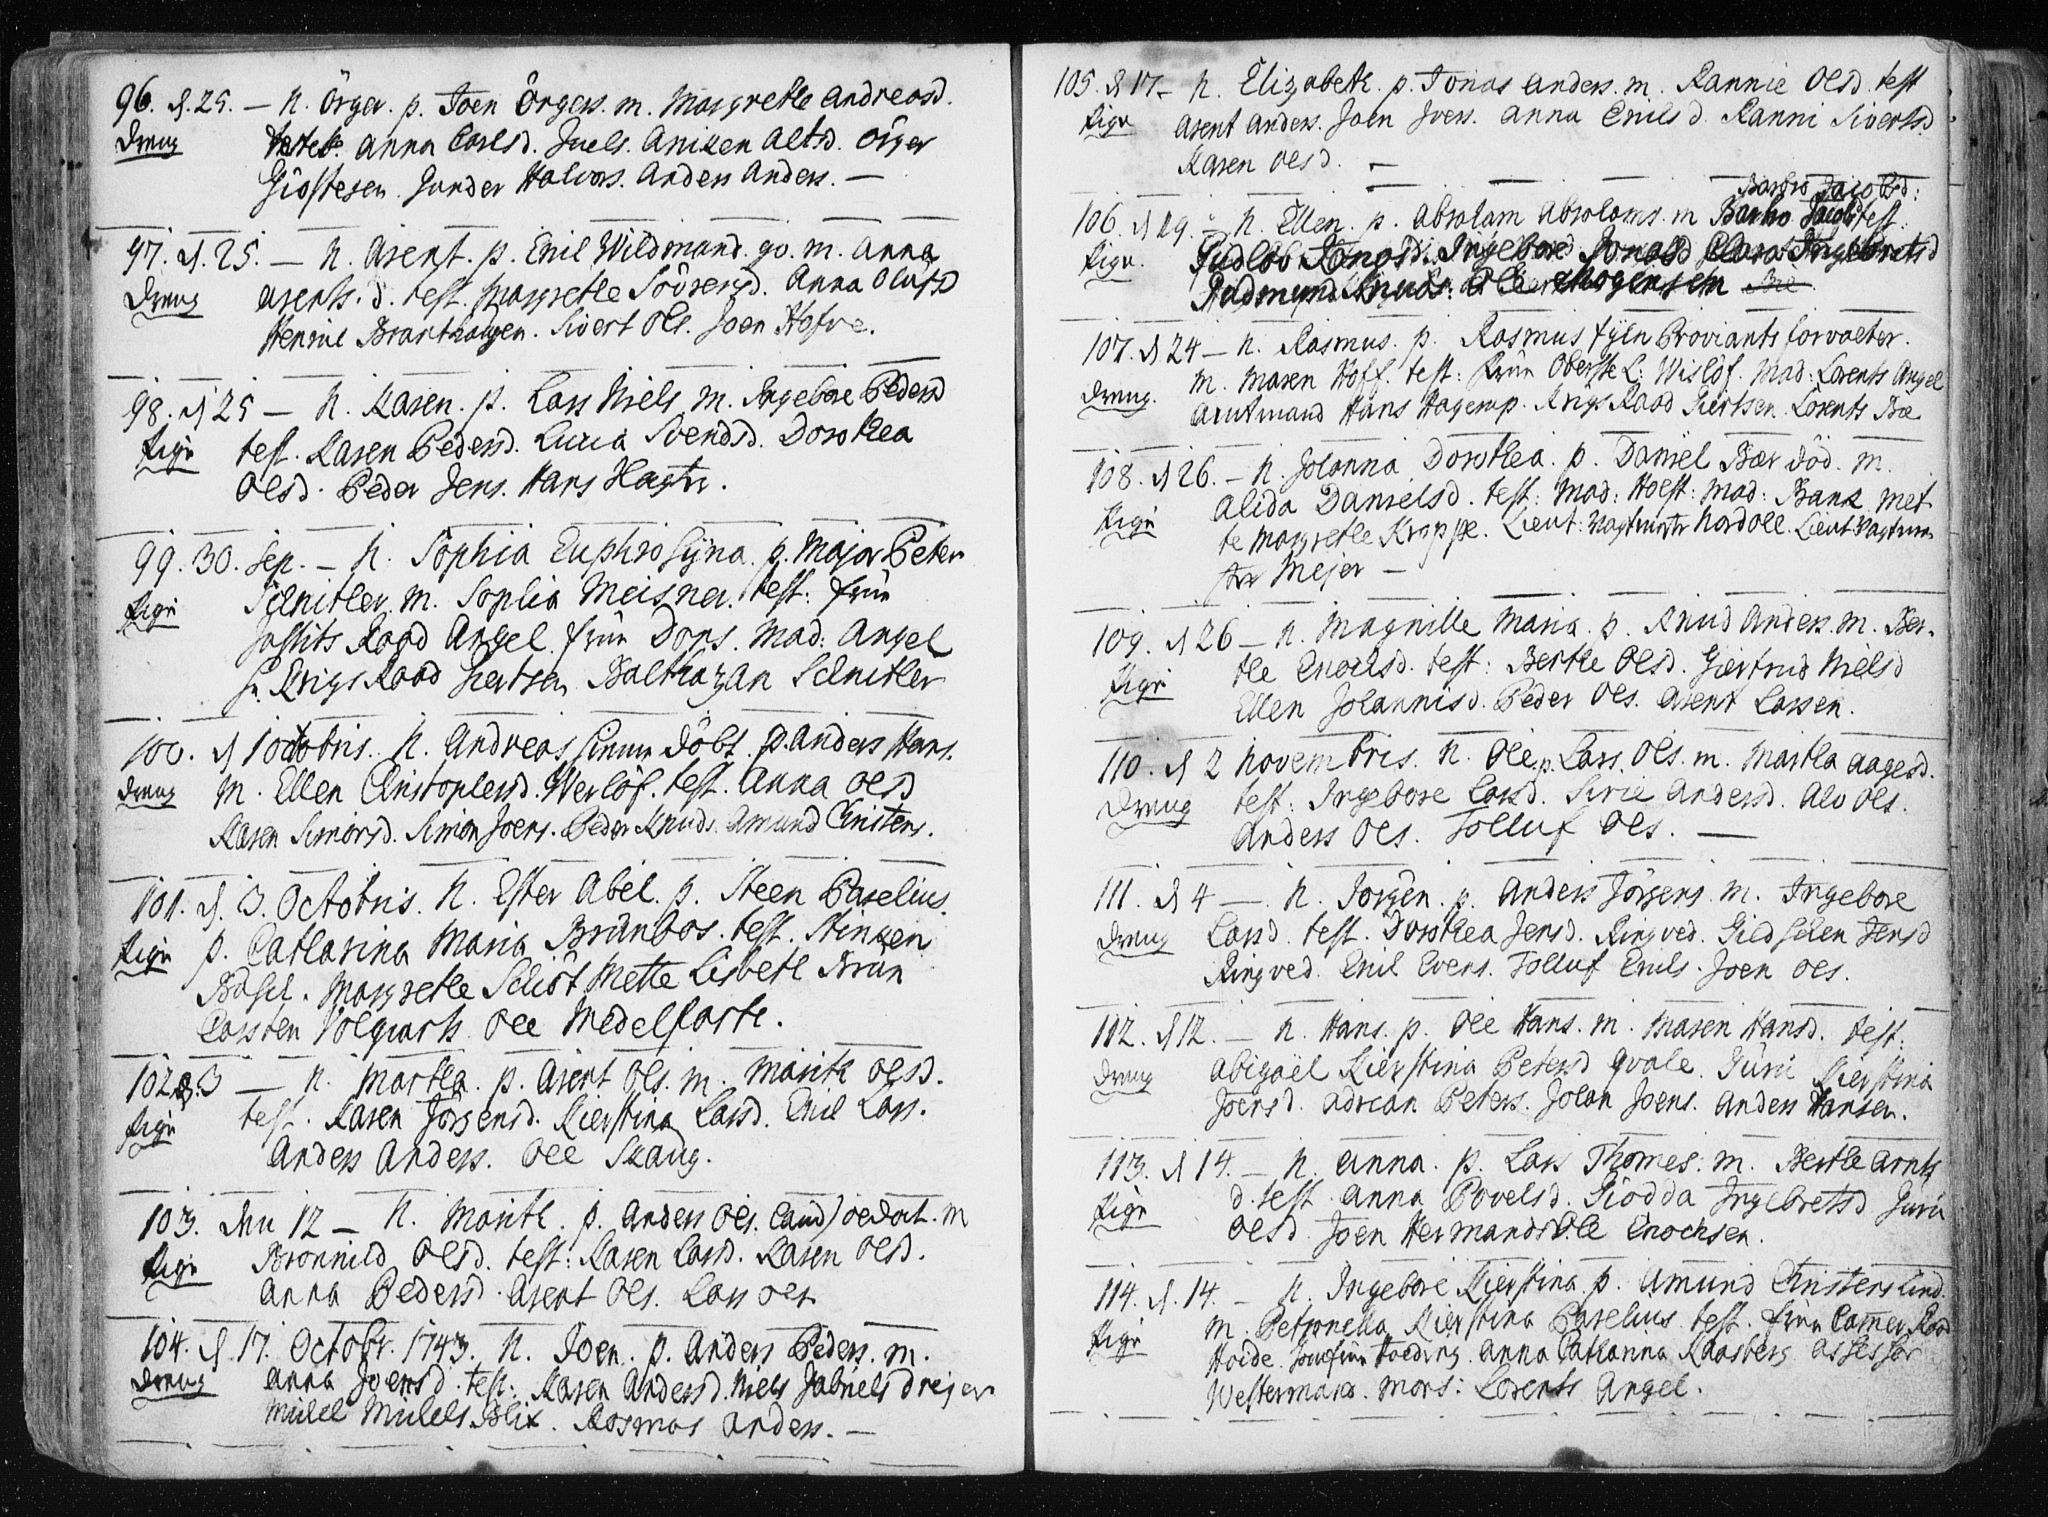 96. d. 25. — N. Örger. p. Joen Örgers. m. Margrethe Andreasd.
Dreng testes. Anna Carlsd. Juels. Aniken Altsd. Örger
Giostesen. Gunder Halvors. Anders Anders. —
97. d. 25. — N. Arent. p. Emil Wildmand. go. m. Anna
Dreng Arents. d. test. Margrethe Sörensd. Anna Olufsd
Henric Sivert Ols. Joen Hofve.
98. d 25 — N. Karen. p. Lars Niels m. Ingebore Pedersd
Pige test. Karen Pedersd. Lucia Svendsd. Dorothea
Olsd. Peder Jens. Hans
99. 30. Sep. — N. Sophia Euphrosyna. p. Major Peter
Pige Schnitler m. Sophia Meisner. test: frue
Justits Raad Angel. frue Dons. Mad: Angel
hr. Krigs Raad Giertsen Balthazar Schnitler
100. d 1 Octobris. N. Andreas döbt. p. Anders Hans.
Dreng m. Ellen Christophersd. Werlöf. test. Anna Olsd
Karen Simonsd. Simon Joens. Peder Knuds. Amund Christens.
101. d. 3. Octobris. N. Ester Abel. p. Steen Parelius.
Pige p. Catharina Maria Brünbos. test. Stinken
Margrethe Schiöt Mette Lisbeth Brün
Carsten Volqvarts Ole Medelfarte.
102 d. 3 — N. Martha. p. Arent Ols. m. Marith Olsd.
Pige test. Karen Jörgensd. Kierstina Larsd. Emil Lars.
Anders Anders. Ole Skaug.
103. den 12 — N. Marith. p. Anders Ols. m
Pige Bronnild Olsd. test: Karen Larsd. Karen Olsd.
Anna Pedersd. Arent Ols. Lars Ols
104. d. 17. Octobr. 1743. N. Joen. p. Anders Peders. m.
Dreng Anna Joensd. test: Karen Andersd. Niels Gabriels drejer
Michel Michels Blix. Rasmus Anders. —
105. d 17 — N. Elizabeth. p. Jonas Anders. m. Rannie Olsd. test
Pige Arent Anders. Joen Ivers. Anna Emilsd. Ranni Sivertsd
Karen Olsd. —
Barbro Jacobsd:
106. d 19. — N. Ellen. p. Absolam Absolams. m Barbro Jacobsd test
Pige. Gudlob Jonasd. Ingebore Jonasd Clara Ingebretsd
Gudmund Knuds. Ole Mogensen
107. d 24 — N. Rasmus. p. Rasmus Fÿen Proviantsforvalter.
Dreng. m. Maren Hoff. test: frue Oberste L: Wislöf. Mad: Lorents Angel
Amtmand Hans Hagerup. Krigs Raad Giertsen. Lorents Bæ
108. d 26. — N. Johanna Dorothea. p. Daniel Bær död. m.
Pige Alida Danielsd. test: Mad: Hoest: Mad: Bank Met
te Margrethe Kroppe. Lieut: Vagtmester Nordahl. Lieut: Vagtmes
ter Mejer —
109. d 26 — N. Magnille Maria. p. Knud Anders. m. Ber-
Pige the Enochsd. test: Berthe Olsd. Giertrud Nielsd
Ellen Johannisd. Peder Ols. Arent Larsen.
110. d 2 Novembris. N. Ole p. Lars Ols. m. Martha Aagesd.
Dreng test: Ingebore Larsd. Sirie Andersd. Alv Ols.
Anders Ols. Tolluf Ols. —
111. d 4 — N. Jorgen. p. Anders Jörgens. m. Ingebore
Dreng Larsd. test. Dorothea Jensd. Ringved. Jensd
Ringved. Emil Evens. Tolluf Emils. Joen Ols.
112. d 12. — N. Hans. p. Ole Hans. m. Maren Hansd. test:
Dreng Abigaël Kierstina Petersd Qvale. Kierstina
Joensd. Adrean Peters. Johan Joens. Anders Hansen.
113. d 14. — N. Anna. p. Lars Thomes: m. Berthe Arnts
Pige d. test Anna Povelsd. Giodda Ingebretsd Guru
Olsd. Joen Hermands Ole Enochsen.
114. d. 14. — N. Ingebore Kierstina p. Amund Christens Lind.
Pige m. Petronella Kierstina Parelius. test. frue Cammer Raad
Hoide. Hoeding. Anna Catharina Raasberg. Assessor
Westermann. Mons: Lorents Angel.